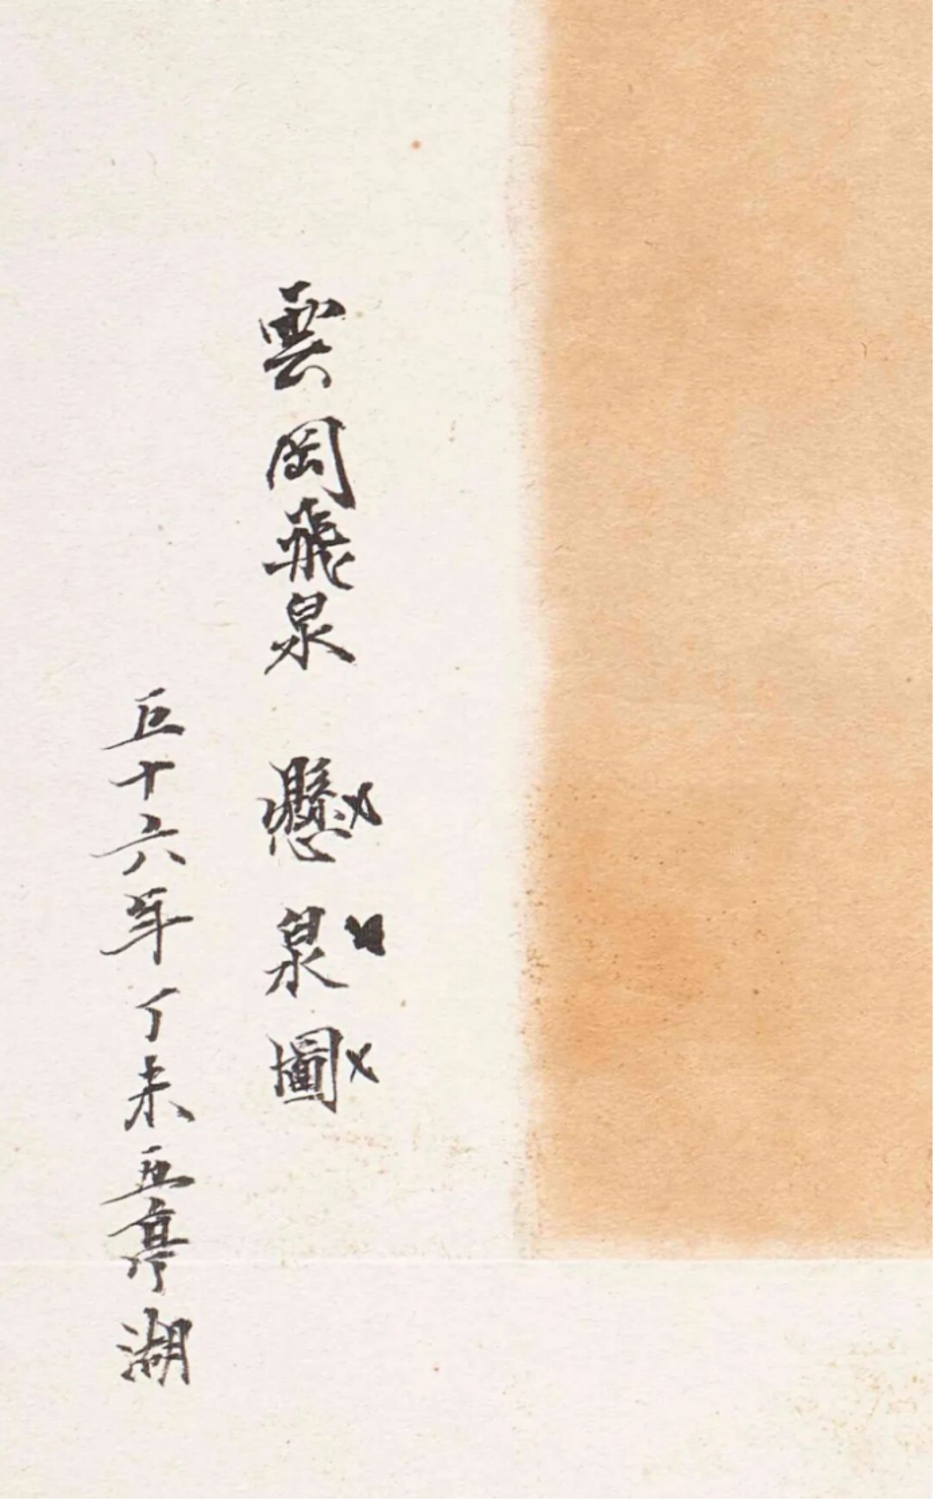 雲岡飛泉 懸泉圖
五十六年丁未五亭湖